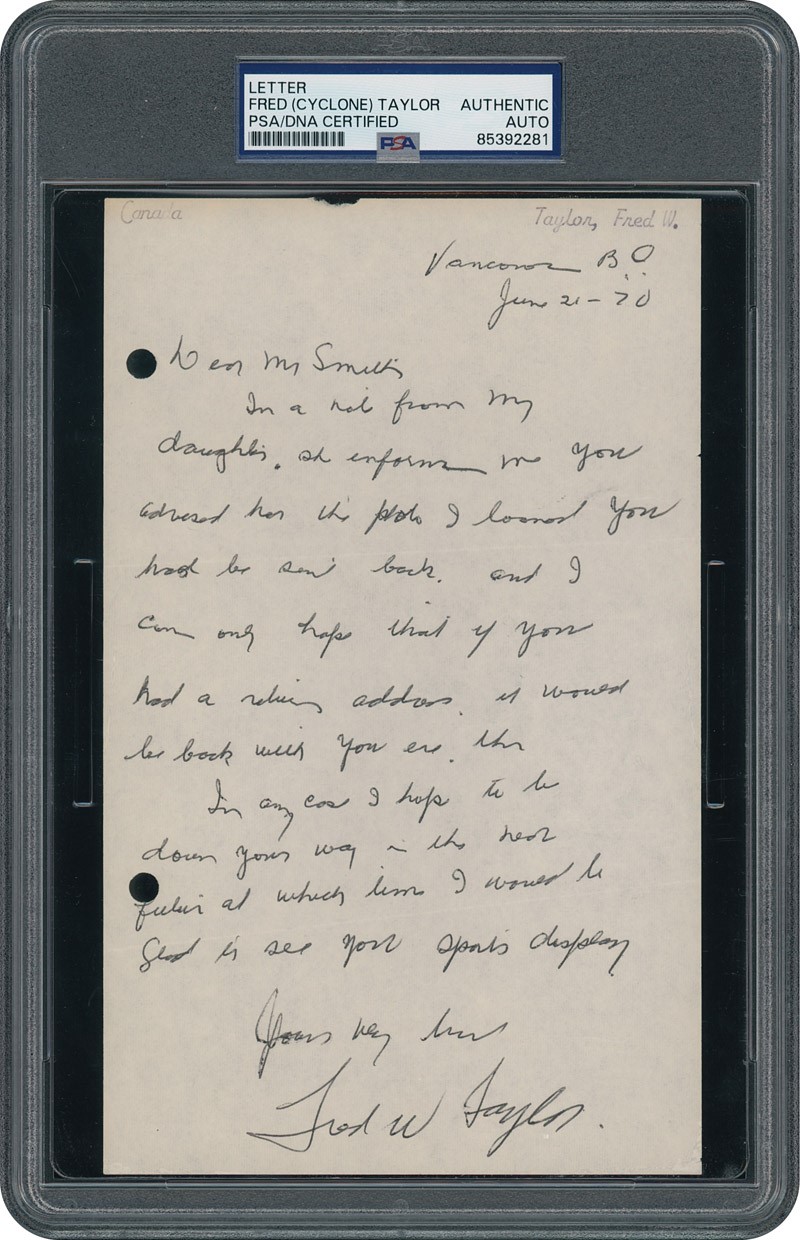 LETTER
FRED (CYCLONE) TAYLOR AUTHENTIC
PSA/DNA CERTIFIED AUTO
PSA 85392281
Canada Taylor, Fred W.
Vancouver B.C.
June 21-70
Dear Mr Smith
In a note from my
daughter, she informs me you
advised her the photo I loaned you
had be sent back, and I
can only hope that if you
had a return address, it would
be back with you ere this
In any case I hope to be
down your way in the near
future at which time I would be
glad to see your sports display
Yours very
Fred W Taylor.